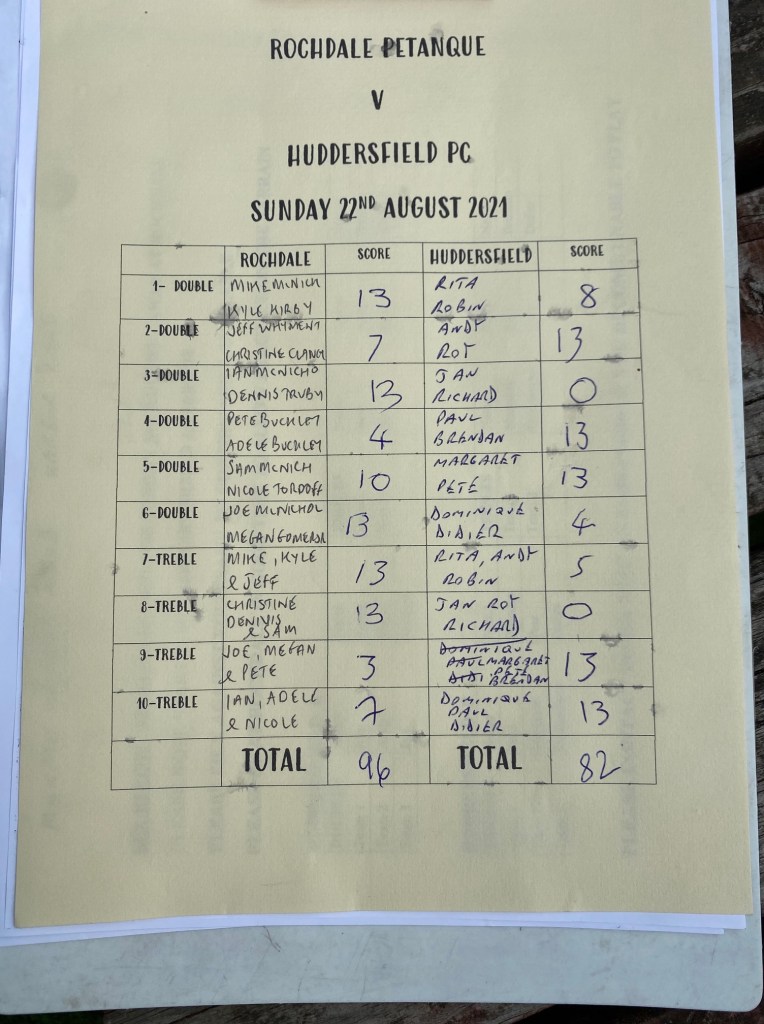 ROCHDALE PETANQUE
V
HUDDERSFIELD PC
SUNDAY 22ND AUGUST 2021
ROCHDALE SCORE HUDDERSFIELD SCORE
1- DOUBLE MIKE MCNICH RITA
KYLE KIRBY 13 ROBIN 8
2-DOUBLE JEFF WHYMENT ANDY
CHRISTINE CLANCY 7 ROY 13
3-DOUBLE IAN MCNICHO JAN
DENNIS TRUBY 13 RICHARD 0
4-DOUBLE PETE BUCKLEY PAUL
ADELE BUCKLEY 4 BRENDAN 13
5-DOUBLE SAM MCNICH MARGARET
NICOLE TORDOFF 10 PETE 13
6-DOUBLE JOE MCNICHOL DOMINIQUE
MEGAN 13 DIDIER 4
7-TREBLE MIKE, KYLE RITA, ANDY
& JEFF 13 ROBIN 5
8-TREBLE CHRISTINE JAN ROY
DENNIS 13 RICHARD 0
& SAM
9-TREBLE JOE, MEGAN DOMINIQUE
PAUL MARGARET
& PETE 3 DIDI PETE 13
BRENDAN
10-TREBLE IAN, ADELE DOMINIQUE
& NICOLE 7 PAUL 13
DIDIER
TOTAL 96 TOTAL 82